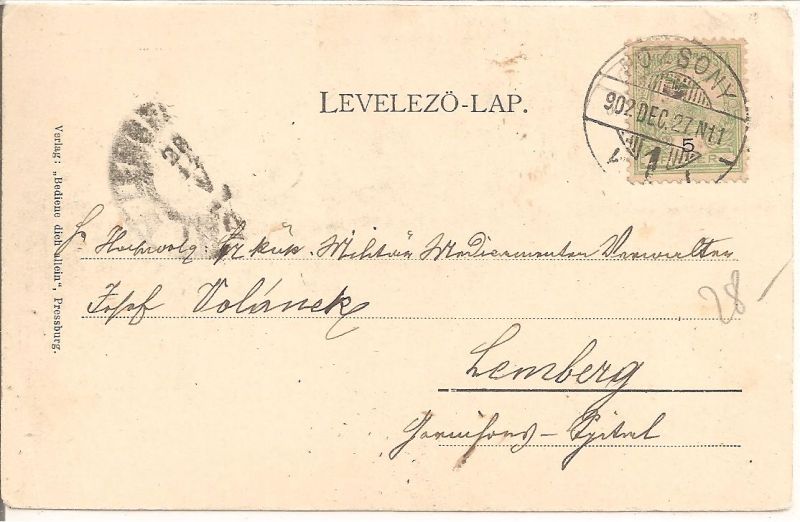 LEVELEZŐ-LAP.
POZSONY
902 DEC. 27. N11
5
1
Verlag: „Bediene dich allein“, Pressburg.
Hochwolg. Militär Medicamenten Verwalter
Josef Volánek
28
Lemberg
Garnisons-Spital